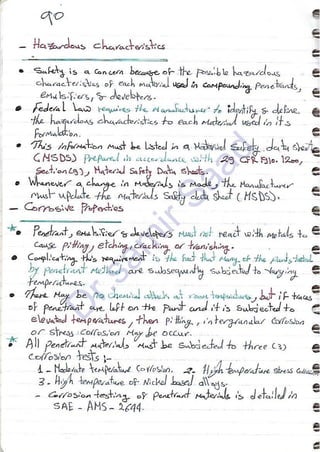 90
- Hazardous characteristics
• Safety is a concern because of the possible hazardous
characteristics of each material used in compounding penetrants,
emulsifiers, & developers.
• Federal Law requires the Manufacturer to identify & define
the hazardous characteristics to each Material used in its
formulation.
• This information Must be listed in a Material Safety data sheet
(MSDS) Prepared in accordance with 29 CFR 1910.1200,
Section(g), Material Safety Data Sheets.
• Whenever a change in Materials is made, the Manufacturer
Must update the Materials Safety data sheet (MSDS).
- Corrosive Properties
• Penetrant, emulsifier & developers Must not react with metals to
Cause pitting, etching, cracking or tranishing.
• Complicating this requirement is the fact that Many of the parts tested
by penetrant Method are subsequently Subjected to varying
temperatures.
• There May be no chemical attack at room temperatures, but if traces
of penetrant are left on the Part and it is subjected to
elevated temperatures, then pitting, intergranular corrosion
or stress corrosion May be occur.
* All penetrant Materials Must be Subjected to three (3)
Corrosion tests :-
1 - Moderate temperature Corrosion. 2- High temperature stress Corrosion
3 - High temperature of Nickel based alloys.
- Corrosion testing of Penetrant Materials is detailed in
SAE - AMS - 2644.